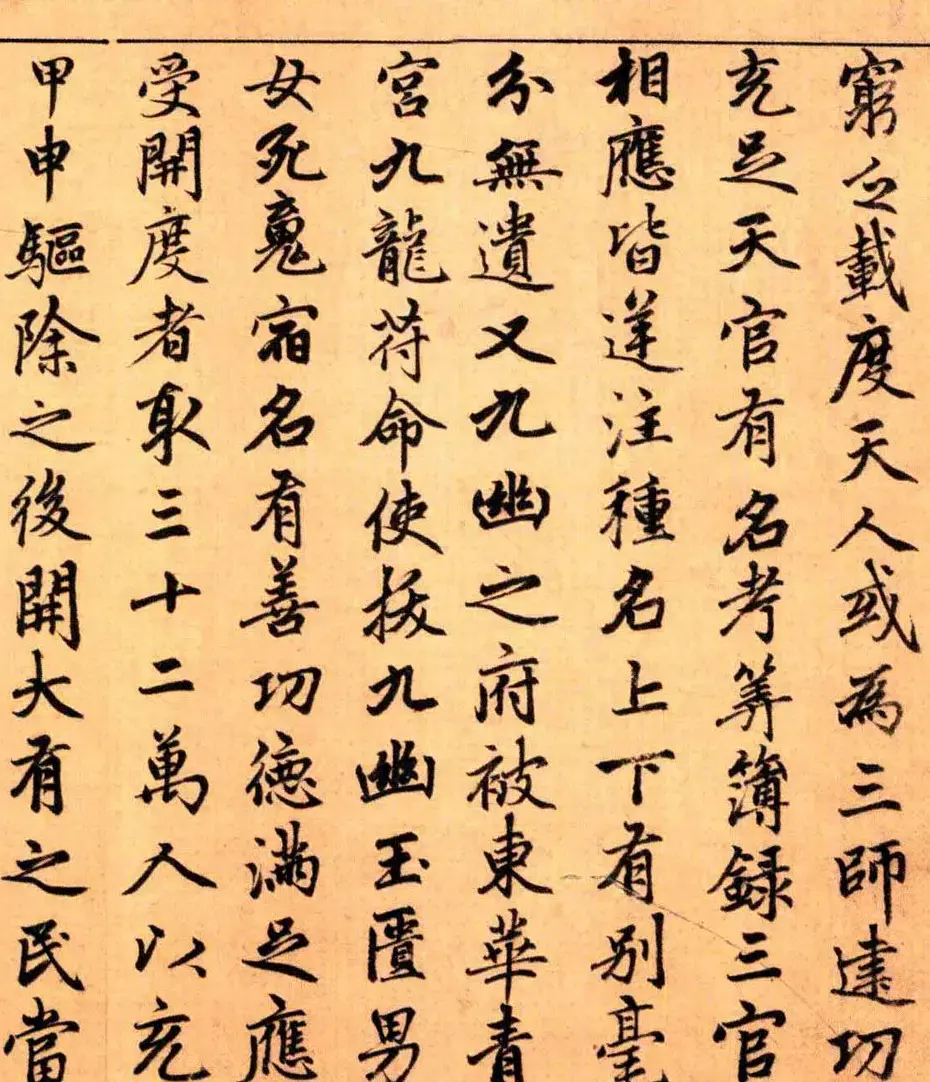 窮之載度天人或為三師建功
充足天官有名考筭簿録三官
相應皆逆注種名上下有别毫
分無遺又九幽之府被東華青
宫九龍符命使拔九幽玉匱男
女死魂宿名有善功德滿足應
受開度者取三十二萬人以充
甲申驅除之後開大有之民當